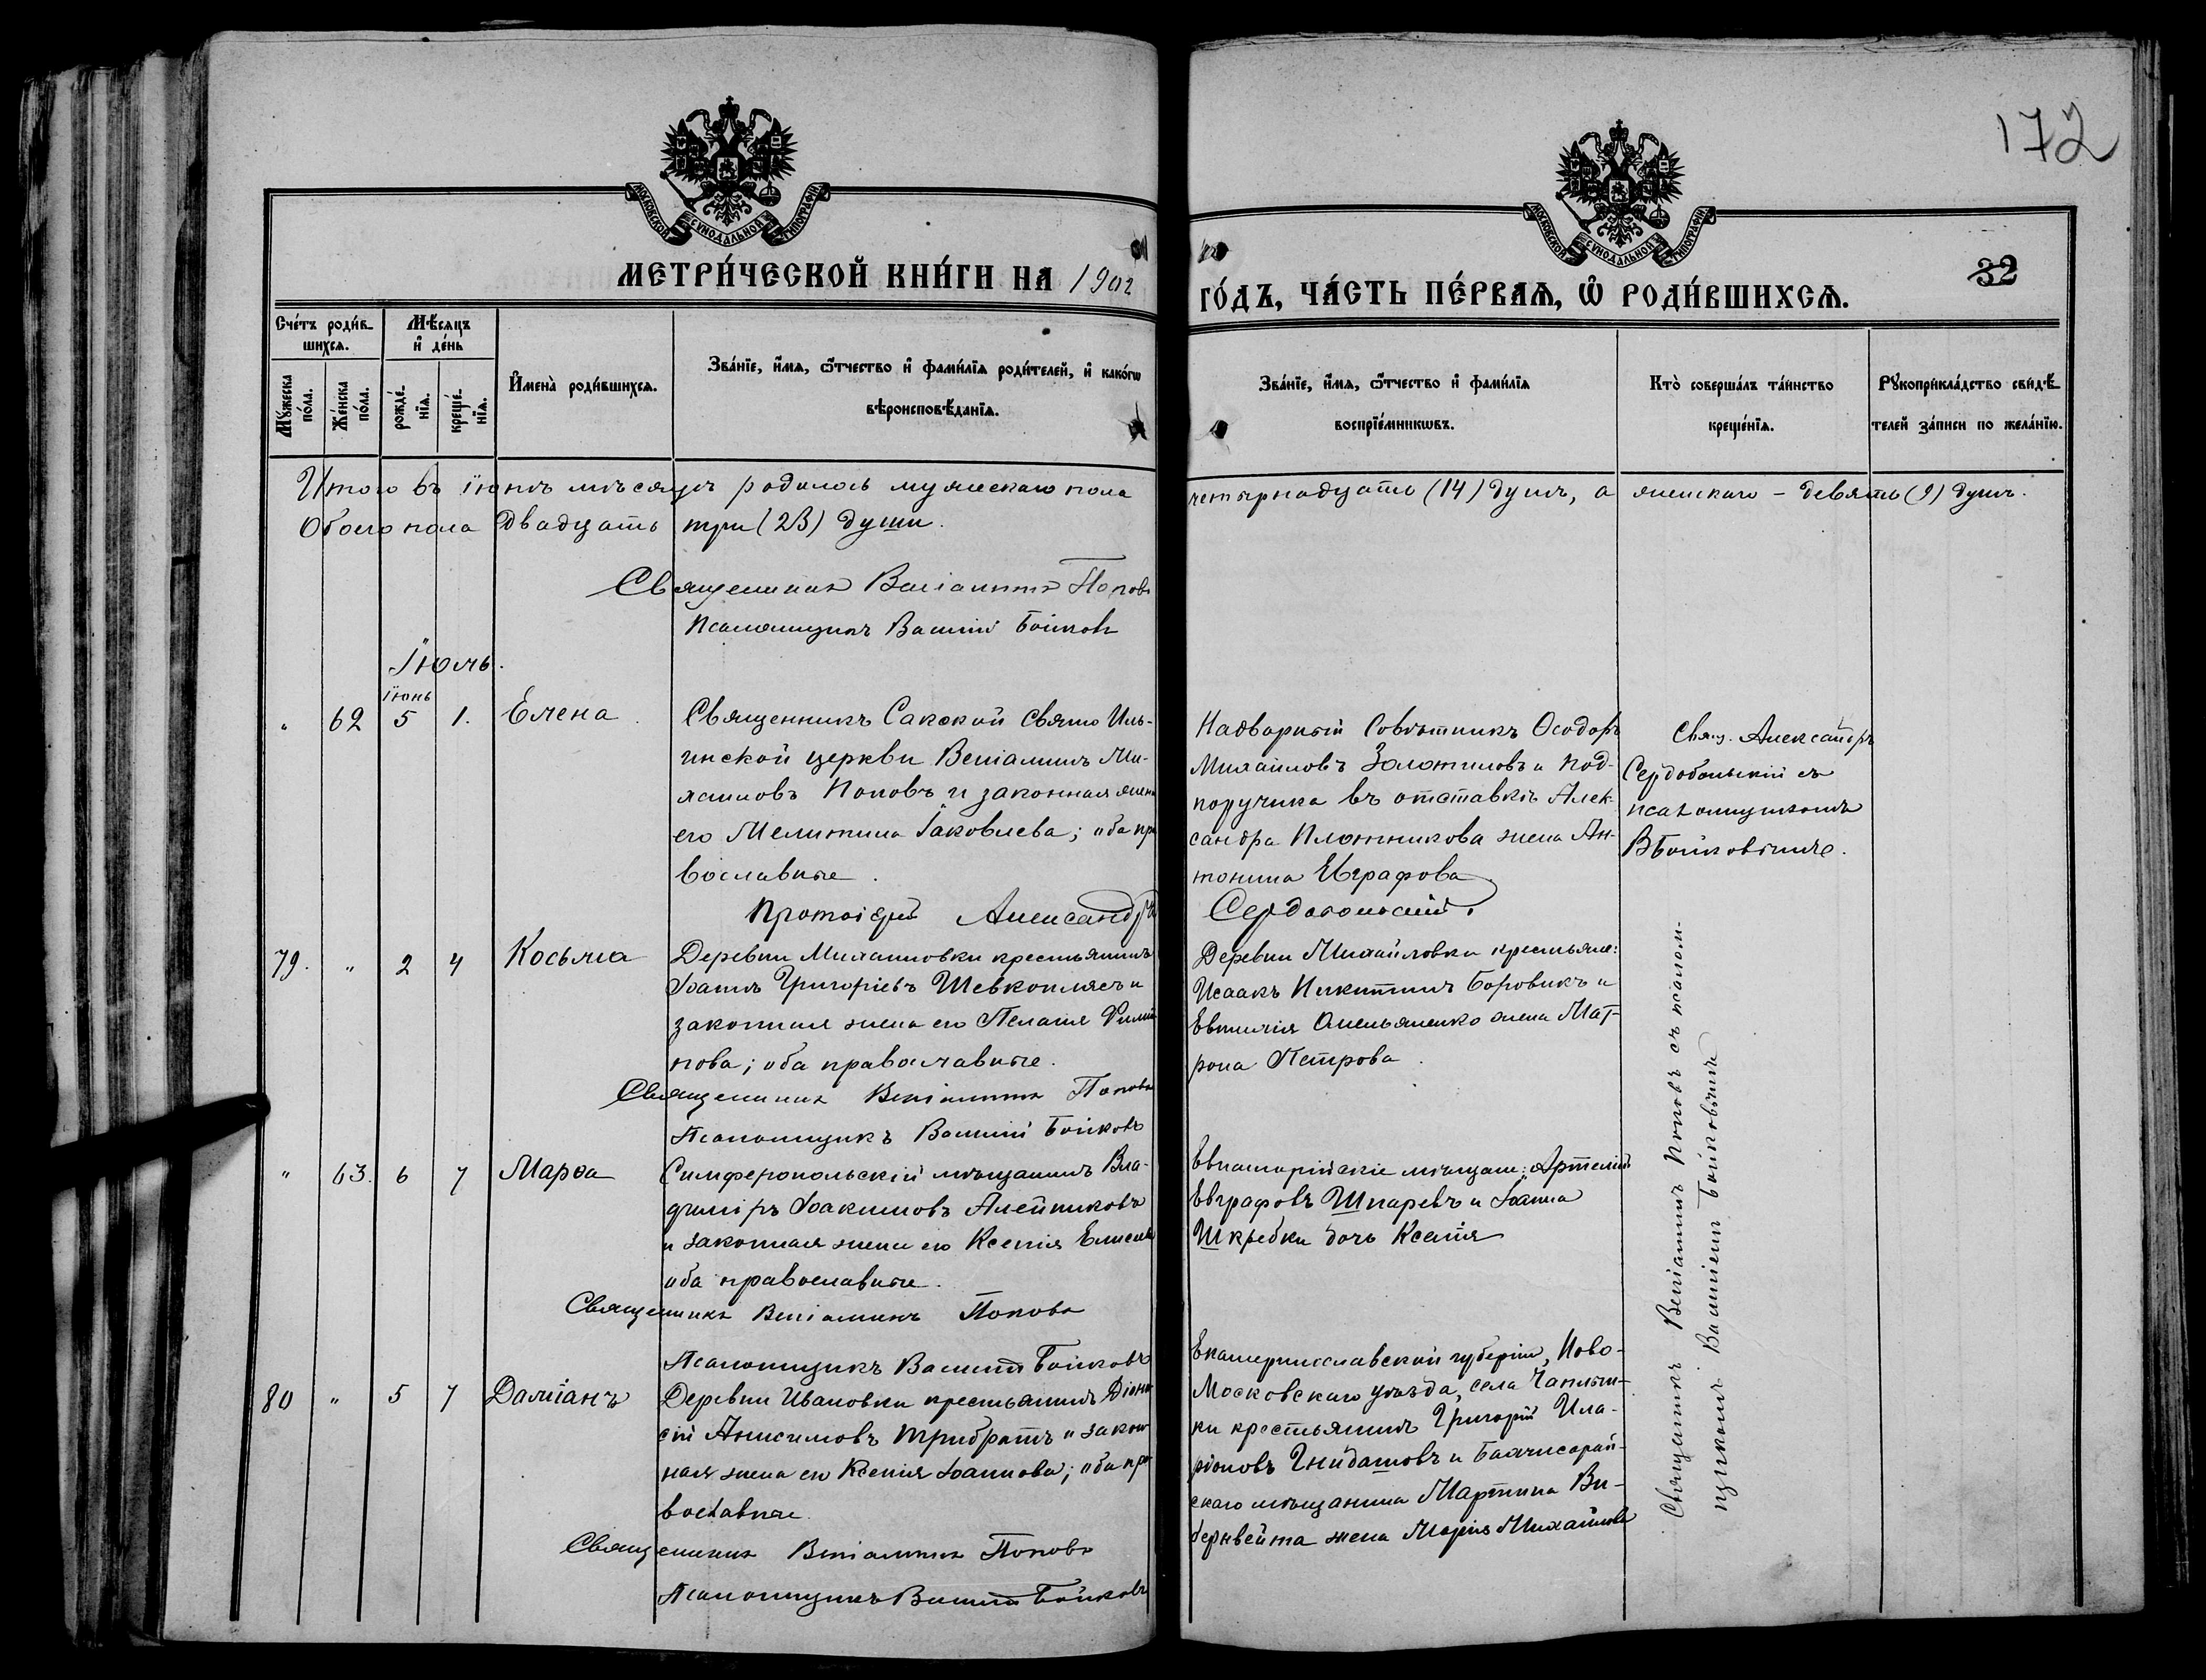 172
МОСКОВСКОЙ СѴНОДАЛЬНОЙ ТИПОГРАФІИ
МОСКОВСКОЙ СѴНОДАЛЬНОЙ ТИПОГРАФІИ
МЕТРИ́ЧЕСКОЙ КНИ́ГИ НА 1902
ГО́ДЪ, ЧА́СТЬ ПЕ́РВАѦ, Ѽ РОДИ́ВШИХСѦ.
32
Сче́тъ роди́в-
шихсѧ.
Мꙋ́жеска
по́ла.
Же́нска
по́ла.
Мѣ́сѧцъ
и҆ де́нь
рожде́-
нїѧ.
креще́-
нїѧ.
И҆мена̀ роди́вшихсѧ.
Зва́нїе, и҆́мѧ, ѻ҆́тчество и҆ фами́лїѧ роди́телей, и҆ како́гѡ
вѣроисповѣ́данїѧ.
Зва́нїе, и҆́мѧ, ѻ҆́тчество и҆ фами́лїѧ
воспрїе́мникѡвъ.
Кто̀ соверша́лъ та́инство
креще́нїѧ.
Рꙋкоприкла́дство свидѣ́-
телей за́писи по жела́нїю.
Итого въ іюнѣ мѣсяцѣ родилось мужескаго пола
четырнадцать (14) душъ, а женскаго – девять (9) душъ.
Обоего пола двадцать три (23) души.
Священникъ Веніаминъ Поповъ
Псаломщикъ Василій Бойковъ
Іюль.
іюнь
" 62 5 1. Елена
Священникъ Сакской Свято Иль-
инской церкви Веніаминъ Ми-
хаиловъ Поповъ и законная жена
его Мелитина Іаковлева; оба пра
вославные.
Надворный Совѣтникъ Ѳеодоръ
Михаиловъ Золотиловъ и под-
поручика въ отставкѣ Алек-
сандра Плотникова жена Ан-
тонина Евграфова
Свящ. Александръ
Сердобольскій съ
псаломщикомъ
В Бойковымъ.
Протоіерей Александръ
Сердобольскій.
79. " 2 4 Косьма
Деревни Михайловки крестьянинъ
Іоаннъ Григоріевъ Шевкоплясъ и
законная жена его Пелагія
нова; оба православные.
Деревни Михайловки крестьяне:
Исаакъ Никитинъ Боровикъ и
Евфимія Омельяненко жена Мат-
рона Петрова
Священникъ Веніаминъ Поповъ
Псаломщикъ Василій Бойковъ
" 63. 6 7 Марѳа
Симферопольскій мѣщанинъ Вла-
диміръ Іоакимовъ Алейниковъ
и законная жена его Ксенія Елисеева
оба православные.
Евпаторійскіе мѣщане: Артемій
Евграфовъ Шпаревъ и Іоанна
Шкребки дочь Ксенія
Священникъ Веніаминъ Поповъ
Псаломщикъ Василій Бойковъ
80 " 5 7 Даміанъ
Деревни Ивановки крестьянинъ Діони
сій Анисимовъ Трибратъ и закон
ная жена его Ксенія Іоаннова; оба пра
вославные.
Екатеринославской губерніи, Ново-
Московскаго уѣзда, села Чаплин-
ки крестьянинъ Григорій Ила-
ріоновъ Гнидашовъ и Бахчисарай-
скаго мѣщанина Мартина Ви-
бернвейта жена Марія Михайлова
Священникъ Веніаминъ Поповъ
Псаломщикъ Василій Бойковъ
Священникъ Веніаминъ Поповъ съ псалом-
щикомъ Василіемъ Бойковымъ